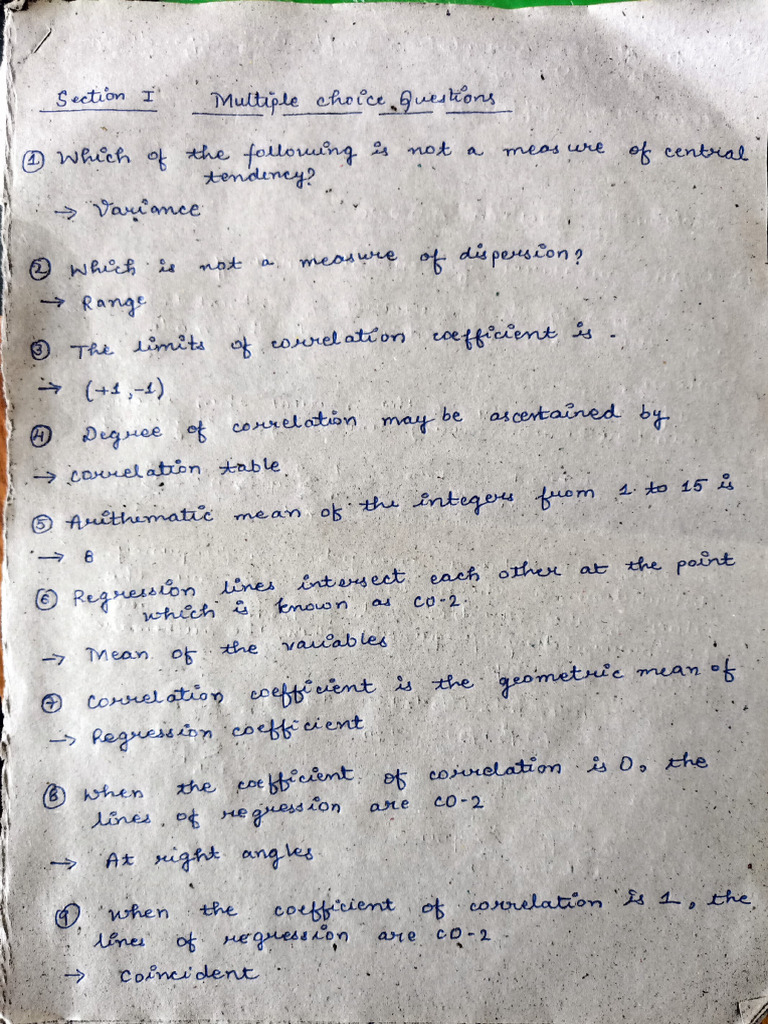 Section I Multiple choice Questions
① Which of the following is not a measure of central
tendency?
→ Variance
② Which is not a measure of dispersion?
→ Range
③ The limits of correlation coefficient is .
→ (+1,-1)
④ Degree of correlation may be ascertained by
→ correlation table
⑤ Arithematic mean of the integers from 1 to 15 is
→ 8
⑥ Regression lines intersect each other at the point
which is known as CO-2
→ Mean of the variables
⑦ Correlation coefficient is the geometric mean of
→ Regression coefficient
⑧ When the coefficient of correlation is 0, the
lines of regression are CO-2
→ At right angles
⑨ When the coefficient of correlation is 1, the
lines of regression are CO-2
→ Coincident